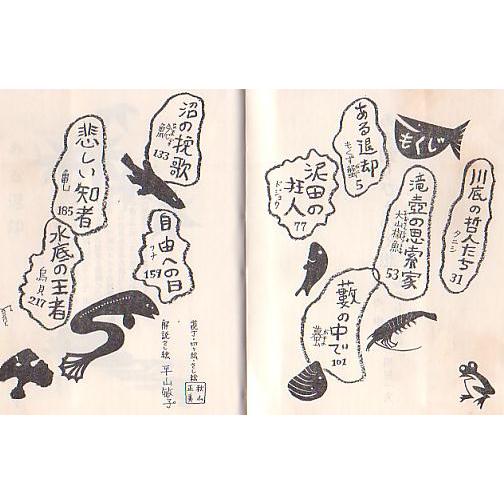 もくじ
ある退却
もくず蟹
5
川底の哲人たち
タニシ
31
滝壺の思索家
大山椒魚
53
泥田の狂人
ドジョウ
77
藪の中で
101
沼の挽歌
133
自由への日
フナ
159
悲しい知者
185
水底の王者
烏貝
217
解説さし絵 平山敏子